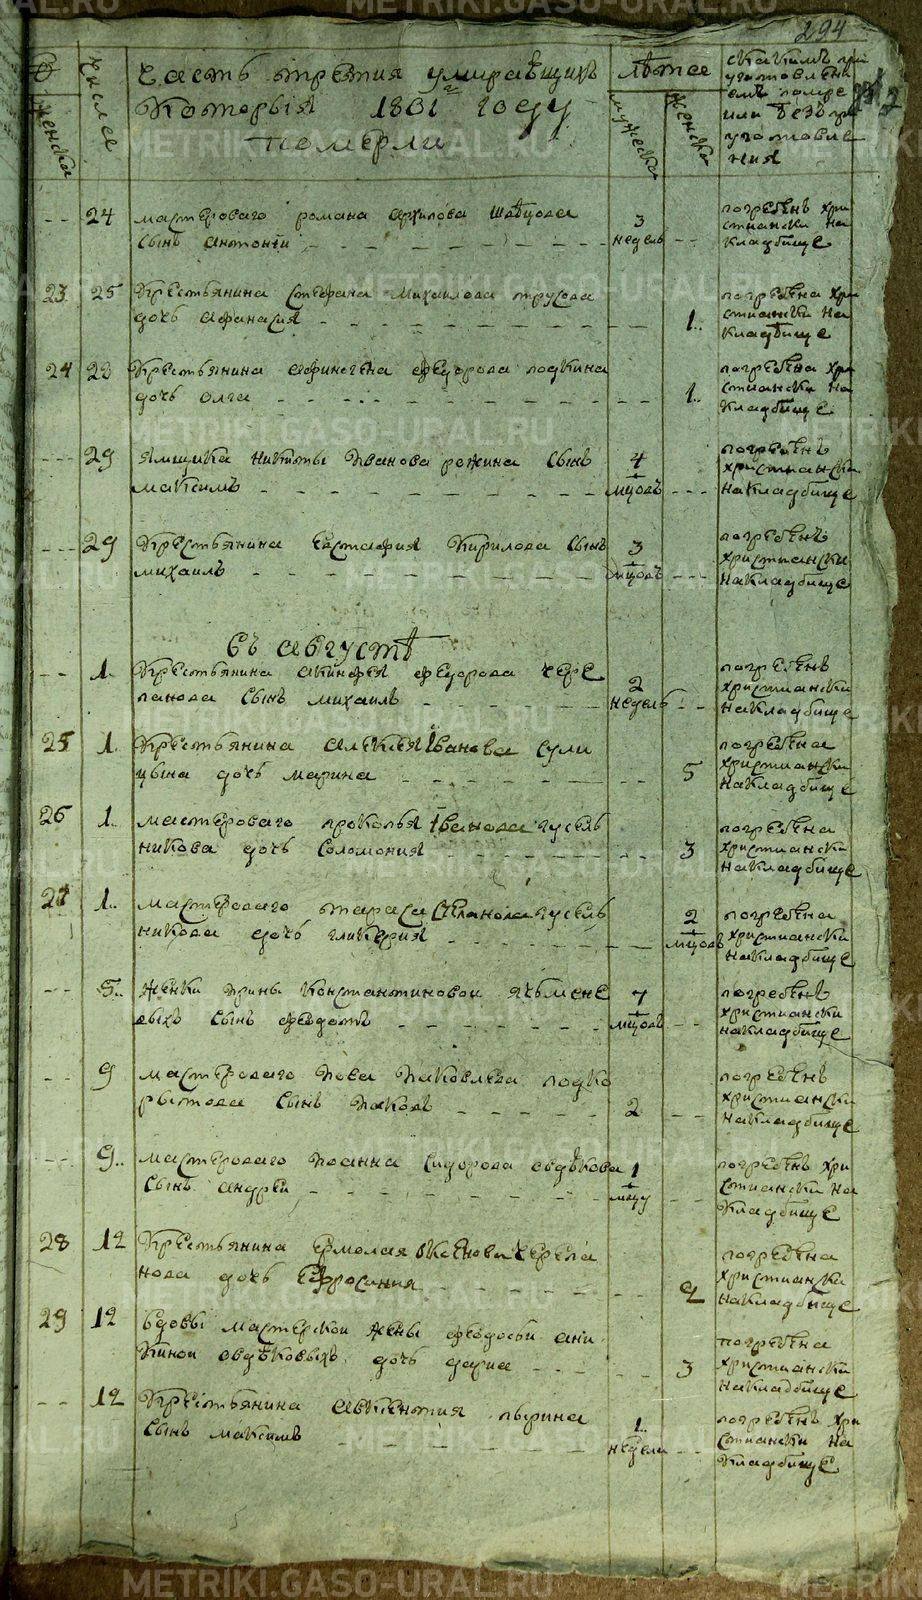 294
женска
числа
часть третия умиравшихъ
которыя 1801 г году
померли
лѣта
мужеска
женска
24 мастероваго романа архипова швѣцова 3
сынъ антоній недель
погребенъ хри
стиански на
кладбище
23 25 крестьянина стефана михаилова трусова
дочь афанасия 1
погребена хри
стиански на
кладбище
24 23 крестьянина афиногена федорова лодкина
дочь олга 1
погребена хри
стиански на
кладбище
29 ямщика никиты иванова режина сынъ 4
максимъ мцовъ
погребенъ
христиански
на кладбище
29 крестьянина евстафия кирилова сынъ 3
михаилъ мцовъ
погребенъ
христиански
на кладбище
въ августѣ
1 крестьянина акинфея федорова чере 2
панова сынъ михаилъ недель
погребенъ
христиански
на кладбище
25 1 крестьянина алексея иванова сули
цына дочь марина 5
погребена
христиански
на кладбище
26 1 мастероваго прокопья иванова гусель
никова дочь соломония 3
погребена
христиански
на кладбище
27 1 мастероваго тараса степанова гусель 2
никова дочь гликерия мцовъ
погребена
христиански
на кладбище
5 женки ирины константиновои ячмене 7
выхъ сынъ федотъ мцовъ
погребенъ
христиански
на кладбище
9 мастероваго иова иаковлева подко
рытова сынъ иаковъ 2
погребенъ
христиански
на кладбище
9 мастероваго иоанна сидорова овдѣкова 1
сынъ андреи мцу
погребенъ хри
стиански на
кладбище
28 12 крестьянина ермолая черепа
нова дочь ефросиния 2
погребена
христиански
на кладбище
29 12 вдовы мастерскои жены федосьи ани
кинои овдѣковыхъ дочь дариа 3
погребена
христиански
на кладбище
12 крестьянина авксентия 1
сынъ максимъ недели
погребенъ хри
стиански на
кладбище
METRIKI.GASO-URAL.RU